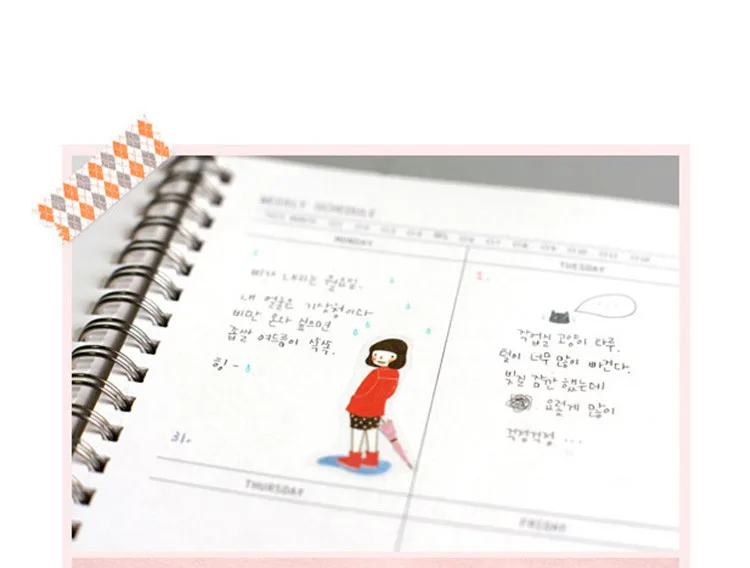 WEEKLY SCHEDULE
MONDAY
TUESDAY
비가 내리는 월요일.
내 얼굴은 기상청이다
비만 온다 싶으면
좁쌀 여드름이 쏙쏙.
힝 -
31.
1.
작업실 고양이 타루.
털이 너무 많이 빠진다.
빗질 잠깐 했는데
요렇게 많이
걱정걱정 ...
THURSDAY
FRIDAY